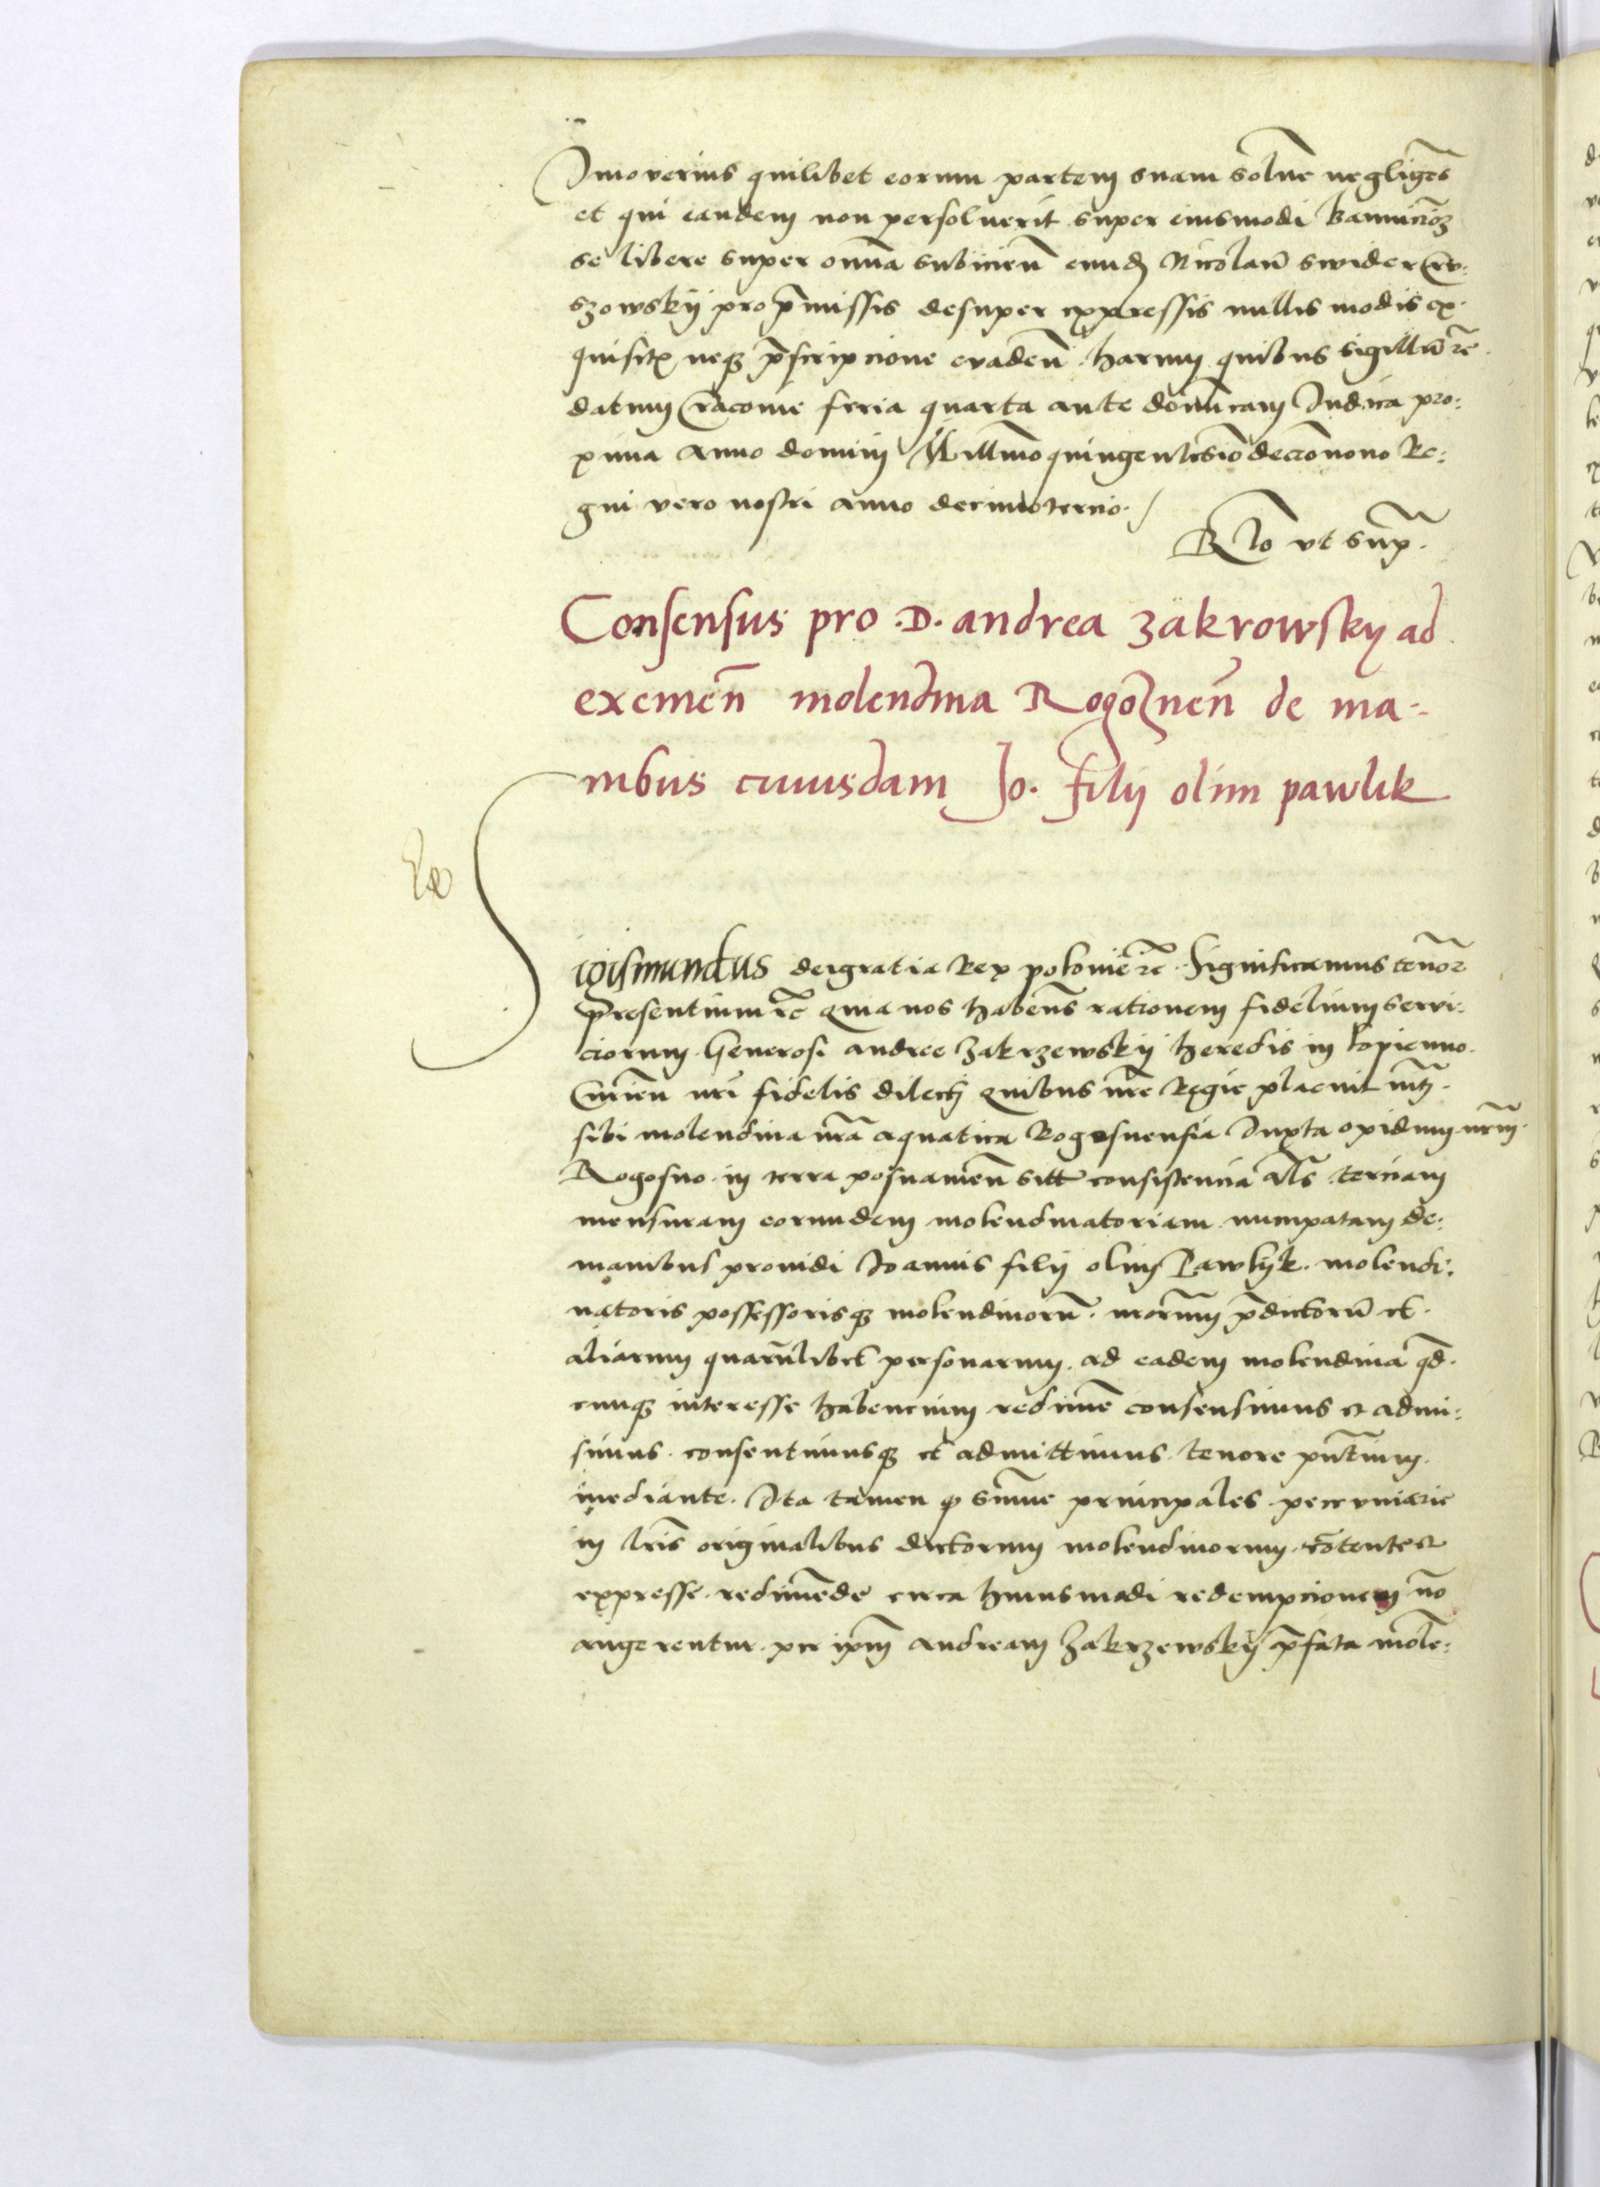 Imoverius quilibet eorum partem suam solvē negligēs
et qui eandem non persolverit super eiusmodi bannicioē
se libere super omnia subiiciēn eundē Nicolaū swider
szowskij pro p̄missis desuper expressis nullis modis ex-
quisitis neq̨ p̄scripcione evadeñ. harum quibus sigillū rc̄
datum Cracovie feria quarta ante dominicam Judica pro:
xima anno domini Millimo quingentesiō decimonono Re:
gni vero nostri anno decimotercio.
Rlo ut sup̄.
Consensus pro .D. andrea zakrowskij ad
exemēn molendina Rogoznēn de ma-
nibus cuiusdam Jo. filij olim pawlik
Sigismundus dei gratia Rex polonie rc̄. Significamus tenōr
presentium rc̄ quia nos habeñs rationem fidelium servi:
ciorum Generosi andree Zakrzewskij heredis in lopienno.
Curieñ nrī fidelis dilecti quibus nrē Regie placuit mtī.
sibi molendina nrā aquatica Rogosnensia Iuxta opidum nrm̄.
Rogosno in terra posnanieñ sitt consistencia als̄ terciam
mensuram eorundem molendinatoriam nuncpatam de:
manibus providi Joannis filij olim Pawlijk. molendi:
natoris possessorisq̨ molendinorū. nrorum p̄dictorū et.
aliarum quarūlibet personarum. ad eadem molendina qd̄.
cunq̨ interesse habencium redimē consensimus et admi:
simus. consentimusq̨ et admittimus tenore pn̄tium
mediante. Ita tamen q̨ sūmme principales pecuniarie
in lrīs originalibus dictorum molendinorum cōtente et
expresse. redimēde circa huiusmodi redempcionem nō
augerentur. per ipm̄ andream Zakrzewskij p̄fata mole: